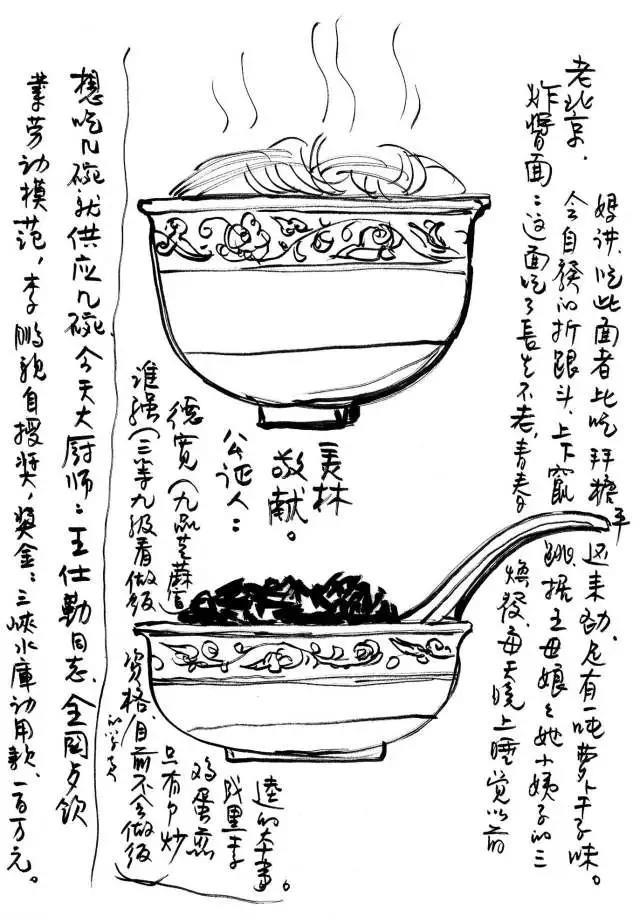 老北京.
炸酱面：这面吃了長生不老，青春
焕發、每天晚上睡觉以前
会自發的折跟斗、上下竄
跳据王母娘々她小姨子的三
媽讲、吃此面者比吃拜糖
平还来劲、足有一吨萝卜干子味。
美林
敬献。
公证人：
德宽（九品芝麻官）
維强（三等九级看做饭
的学员
资格、目前不会做饭
只有炒
鸡蛋煎
里李
逵的本事。
想吃几碗就供应几碗、今天大厨师：王仕勤同志、全国饮
業劳动模范，李鹏親自授奖，奖金：三峡水庫动用款、一百万元。